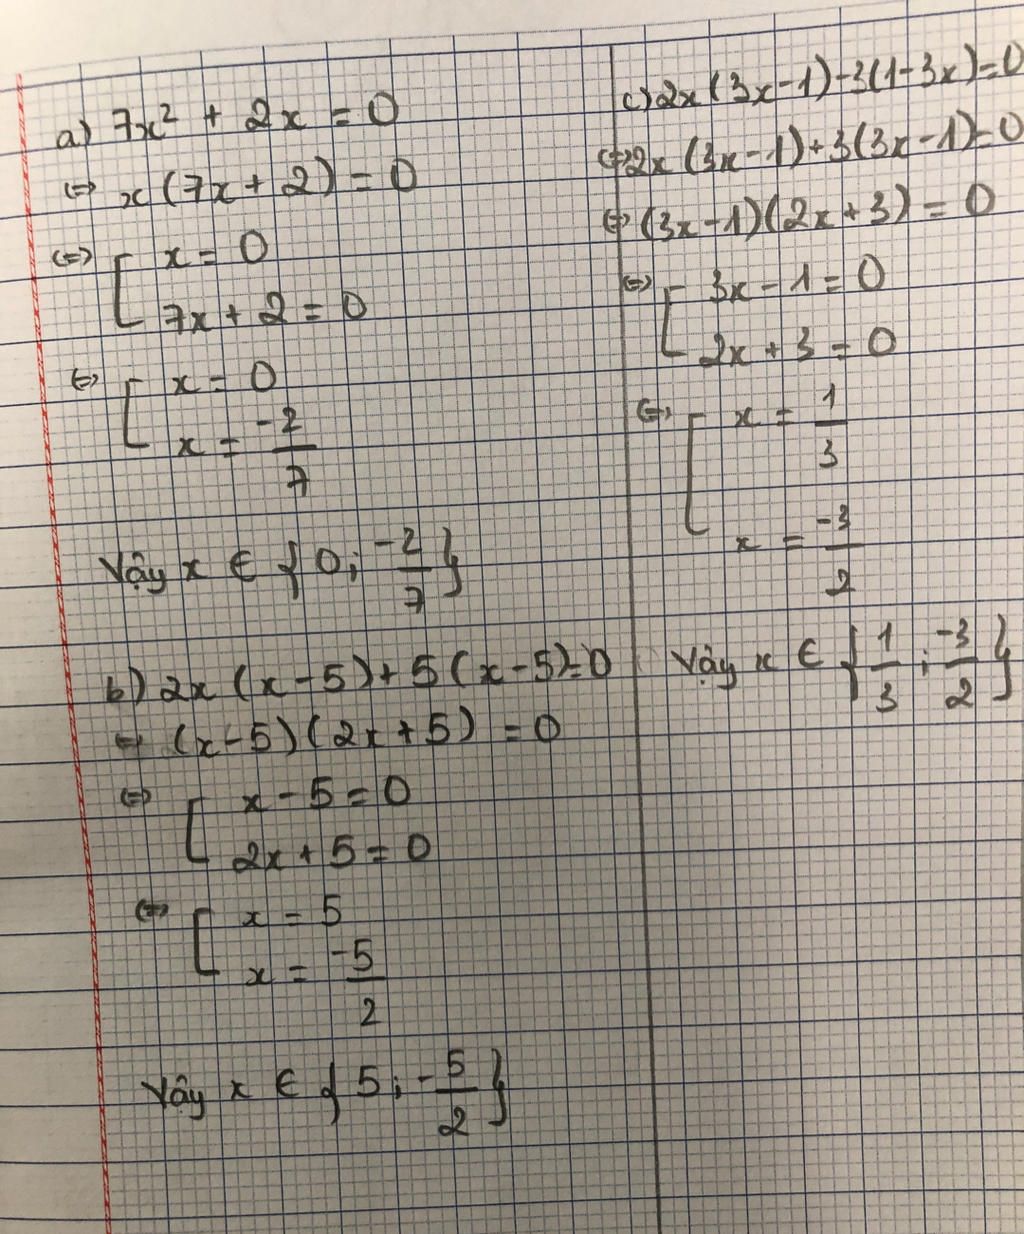 a) 7x² + 2x = 0
⇔ x(7x + 2) = 0
⇔ [ x = 0
7x + 2 = 0
⇔ [ x = 0
x = -2/7
Vậy x ∈ {0; -2/7}
b) 2x(x-5)+5(x-5)=0
⇔ (x-5)(2x+5) = 0
⇔ [ x - 5 = 0
2x + 5 = 0
⇔ [ x = 5
x = -5/2
Vây x ∈ {5; -5/2}
c) 2x(3x-1)-3(1-3x)=0
⇔ 2x(3x-1)+3(3x-1)=0
⇔ (3x-1)(2x+3) = 0
⇔ [ 3x - 1 = 0
2x + 3 = 0
⇔ [ x = 1/3
x = -3/2
Vậy x ∈ {1/3; -3/2}